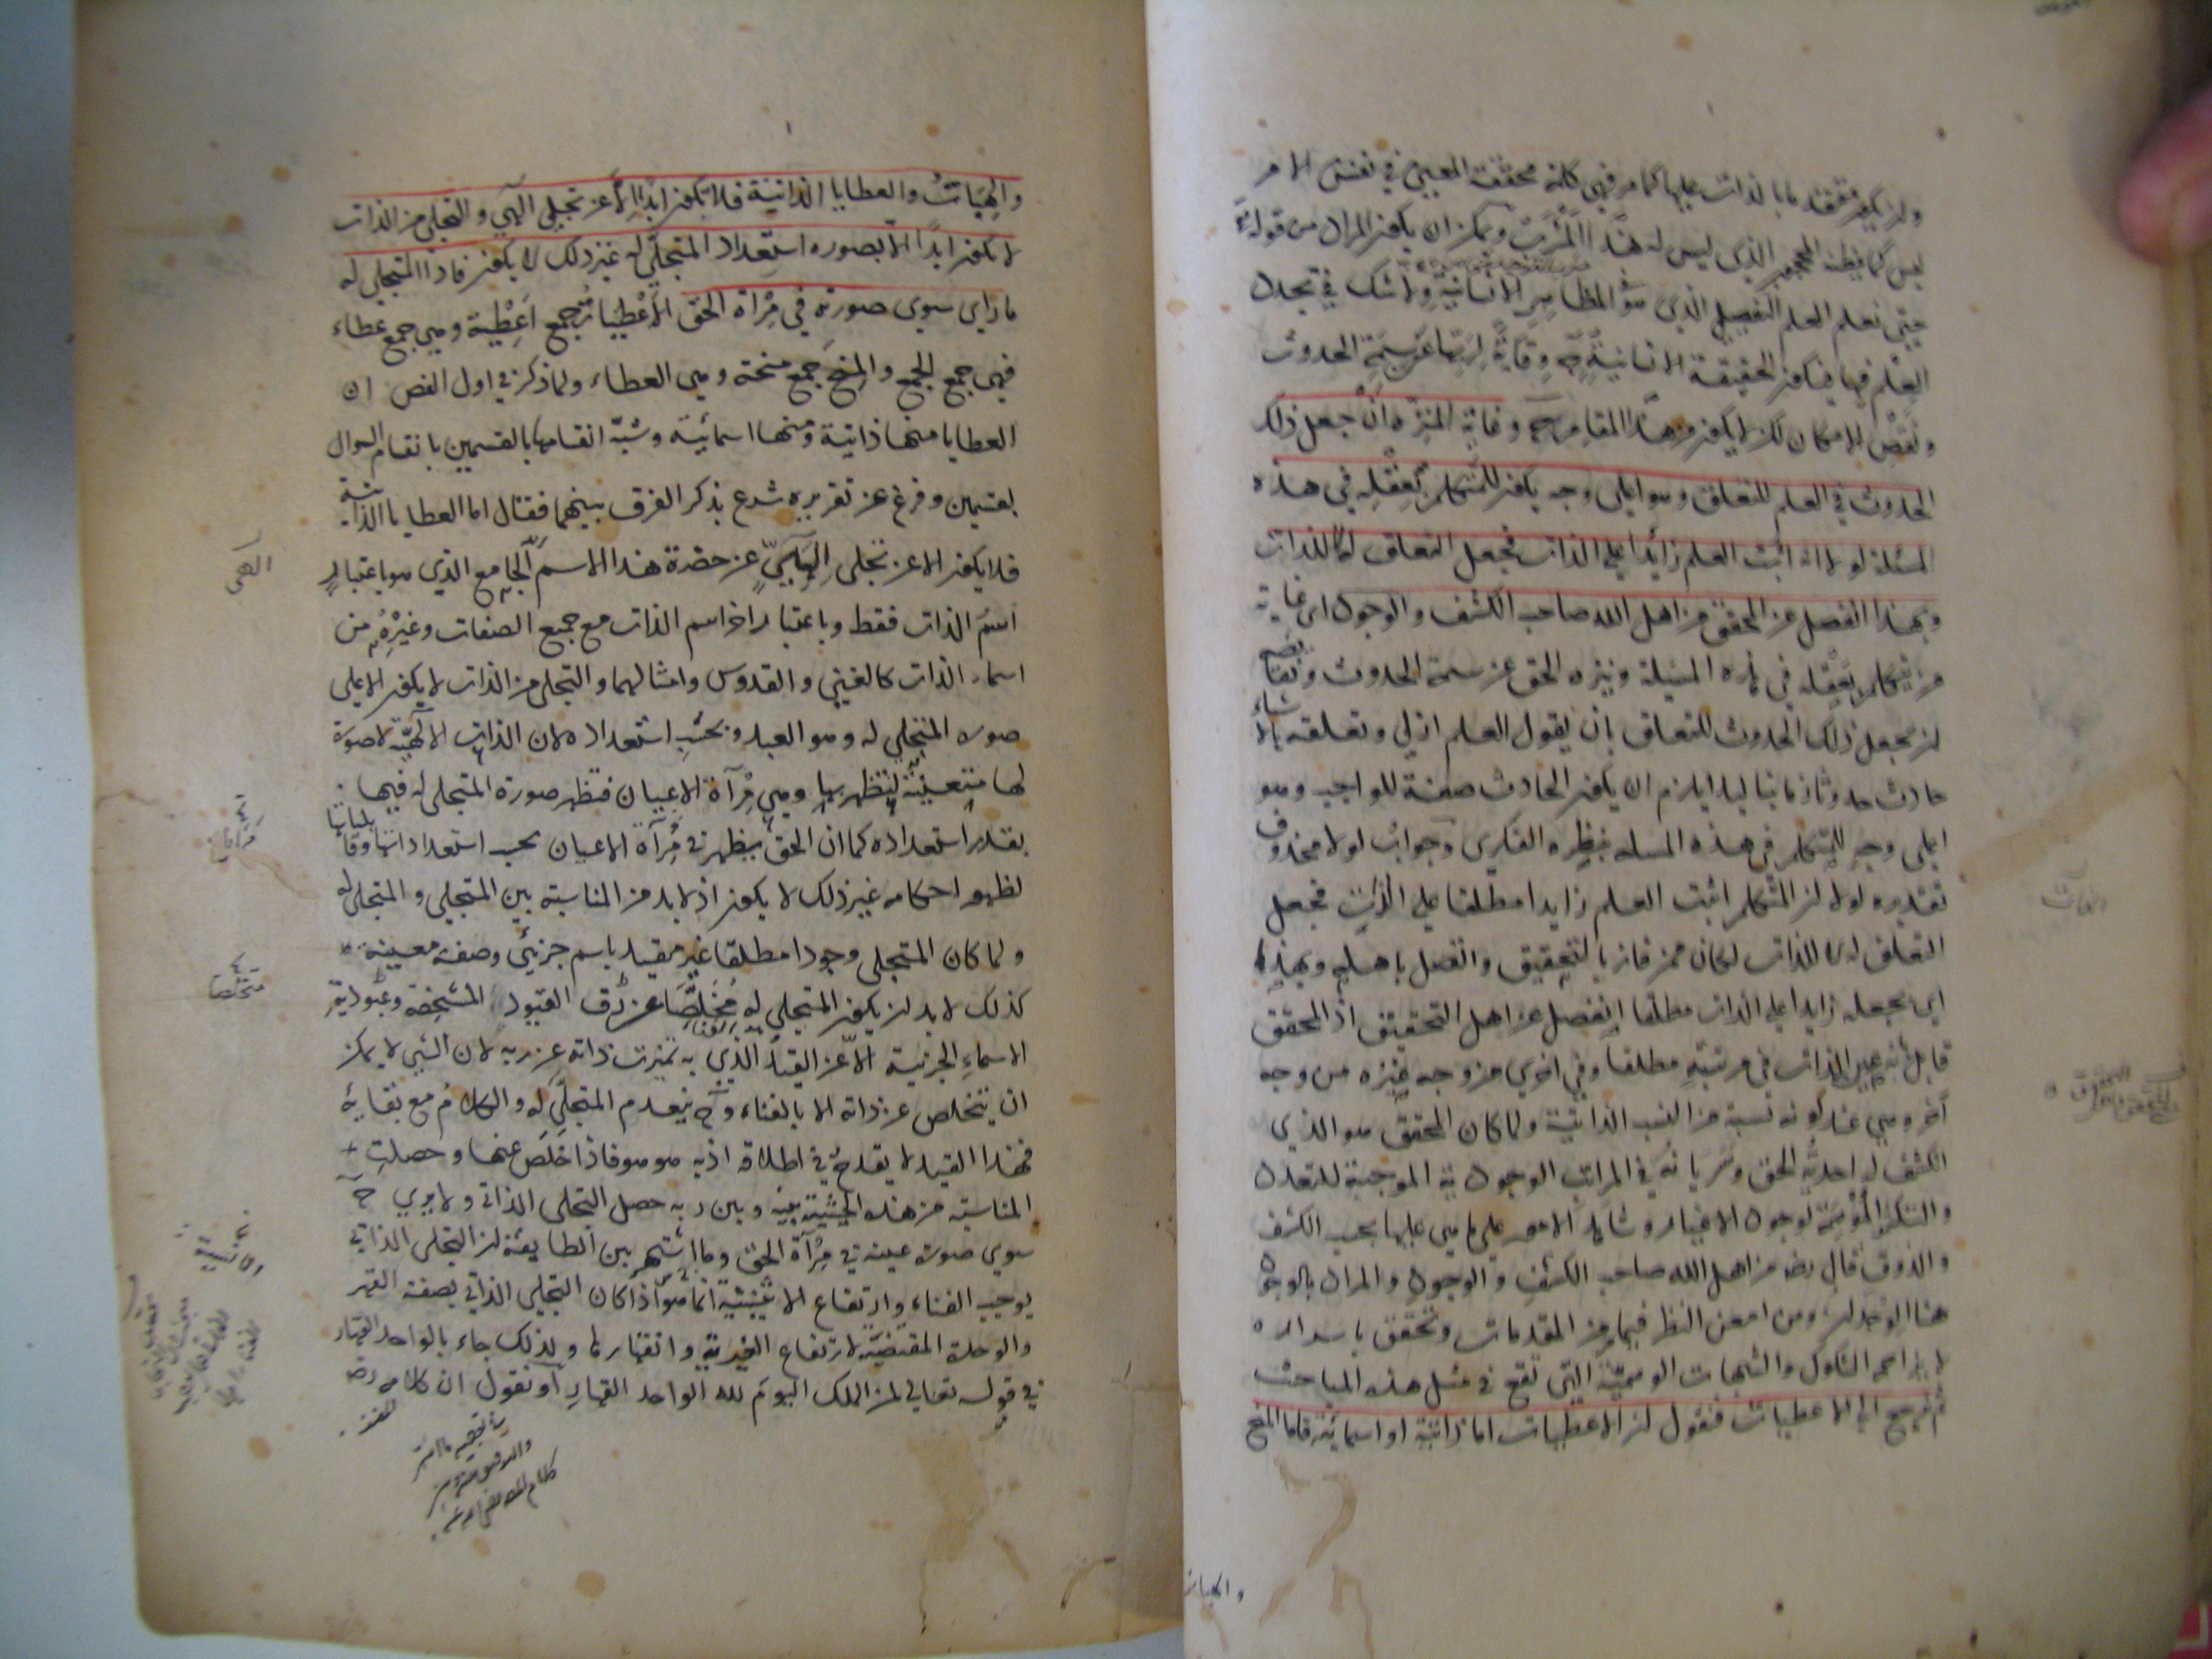 ولم يكن متقدما بالذات عليها كما مر فهي كانه محققة المعيني في نفس الامر
ليس كما يظنه المحجوب الذي ليس له هذا المشرب ويمكن ان يكون المراد من قوله
حتى نعلم العلم التفصيلي الذي هو المظاهر الانسانية ولا شك في تجدد
العلم فيها فيكون الحقيقة الانسانية ح وقاية لربها عن سمة الحدوث
ونقص الامكان لكن لا يكون هذا المقام ح وغاية المنزه ان يجعل ذلك
الحدوث في العلم للتعلق وهو اعلى وجه يكون للمتكلم بعقله في هذه
المسئلة لولا انه اثبت العلم زايدا على الذات فجعل التعلق له لا للذات
وبهذا انفصل عن المحقق من اهل الله صاحب الكشف والوجود اي غاية
من يتكلم بعقله في هذه المسئلة وينزه الحق عن سمة الحدوث ونقايصه
ان يجعل ذلك الحدوث للتعلق بان يقول العلم ازلي وتعلقه بالاشياء
حادث حدوثا زمانيا ليلا يلزم ان يكون الحادث صفة للواجب وهو
اعلى وجه للمتكلم في هذه المسله بنظره الفكري وجواب لولا محذوف
تقديره لولا ان المتكلم اثبت العلم زايدا مطلقا على الذات فجعل
التعلق له لا للذات لكان ممن فاز بالتحقيق واتصل باهليه وبهذا
اي بجعله زايدا على الذات مطلقا انفصل عن اهل التحقيق اذ المحقق
قايل بانه عين الذات في مرتبة مطلقا وفي اخرى من وجه غيره من وجه
آخر وهي عند كونه نسبة من النسب الذاتية ولما كان المحقق هو الذي
انكشف له احدية الحق وسريانه في المراتب الوجودية الموجبة للتعدد
والتكثر الموهمة لوجود الاغيار وشاهد الامور على ما هي عليها بحسب الكشف
والذوق قال رضه من اهل الله صاحب الكشف والوجود والمراد بالوجود
هنا الوجدان ومن امعن النظر فيما مر من المقدمات وتحقق باسراره
لا يزاحمه الشكوك والشبهات الوهمية التي تقع في مثل هذه المباحث
ثم نرجع الى الاعطيات فنقول ان الاعطيات اما ذاتية او اسمائية فاما المنح
والهبات
والهبات والعطايا الذاتية فلا تكون ابدا الا عن تجلي الهي والتجلي من الذات
لا يكون ابدا الا بصوره استعداد المتجلى له غير ذلك لا يكون فاذا المتجلي له
ما راى سوى صورته في مرآة الحق الاعطيات جمع اعطية وهي جمع عطاء
فهي جمع الجمع والمنح جمع منحته وهي العطاء ولما ذكر في اول الفص ان
العطايا منها ذاتية ومنها اسمائية وشبه انقسامها بالقسمين بانقسام السوال
بقسمين وفرغ عن تقريره شرع بذكر الفرق بينهما فقال اما العطايا الذاتية
فلا يكون الا عن تجلى الهي عن حضرة هذا الاسم الجامع الذي هو باعتبار
اسم الذات فقط وباعتبار اخر اسم الذات مع جميع الصفات وغيره من
اسماء الذات كالغني والقدوس وامثالهما والتجلي من الذات لا يكون الا على
صوره المتجلي له وهو العبد وبحسب استعداده لان الذات الالهية لا صورة
لها متعينة لتظهر بها وهي مرآة الاعيان فتظهر صورة المتجلى له فيها
بقدر استعداده كما ان الحق يظهر في مرآة الاعيان بحسب استعداداتها وقابلياتها
لظهور احكامه غير ذلك لا يكون اذ لا بد من المناسبة بين المتجلي والمتجلى له
ولما كان المتجلى وجودا مطلقا غير مقيد باسم جزئي وصفة معينة
كذلك لا بد ان يكون المتجلي له مخلصا عن رق القيود المشخصة وعبودية
الاسماء الجزئية الا عن القيد الذي به تميزت ذاته عن ربه لان الشي لا يمكن
ان يتخلص عن ذاته الا بالفناء وح ينعدم المتجلى له والكلام مع بقايه
فهذا القيد لا يقدح في اطلاقه اذ به هو هو فاذا خلص عنها وحصلت
المناسبة من هذه الحيثية بينه وبين ربه حصل التجلى الذاتي ولا يرى ح
سوى صورة عينه في مرآة الحق وما اشتهر بين الطايفة ان التجلى الذاتي
يوجب الفناء وارتفاع الاثنينية انما هو اذا كان التجلي الذاتي بصفة القهر
والوحدة المقتضية لارتفاع الغيرية وانقهارها ولذلك جاء بالواحد القهار
في قوله تعالى لمن الملك اليوم لله الواحد القهار او نقول ان كلامه رضه
الهى